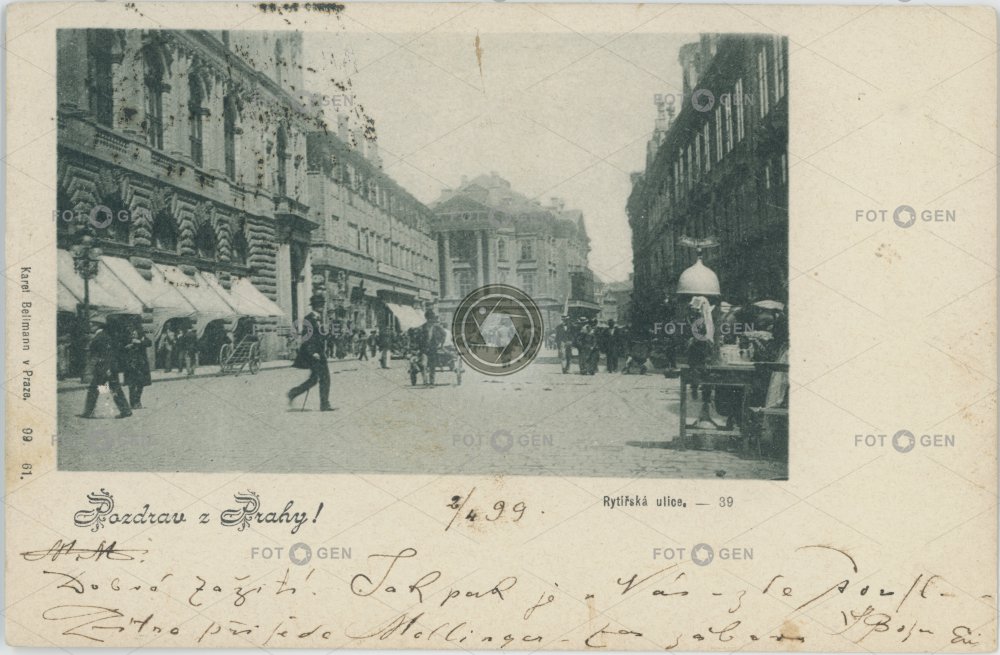 Karel Bellmann v Praze. 99 61.
Pozdrav z Prahy!
2/4 99.
Rytířská ulice. — 39
M. M.
Dobré zažití. Jak pak je u Vás
Zítra přijede Mollinger
FOTOGEN
FOTOGEN
FOTOGEN
FOTOGEN
FOTOGEN
FOTOGEN
FOTOGEN
FOTOGEN
FOTOGEN
FOTOGEN